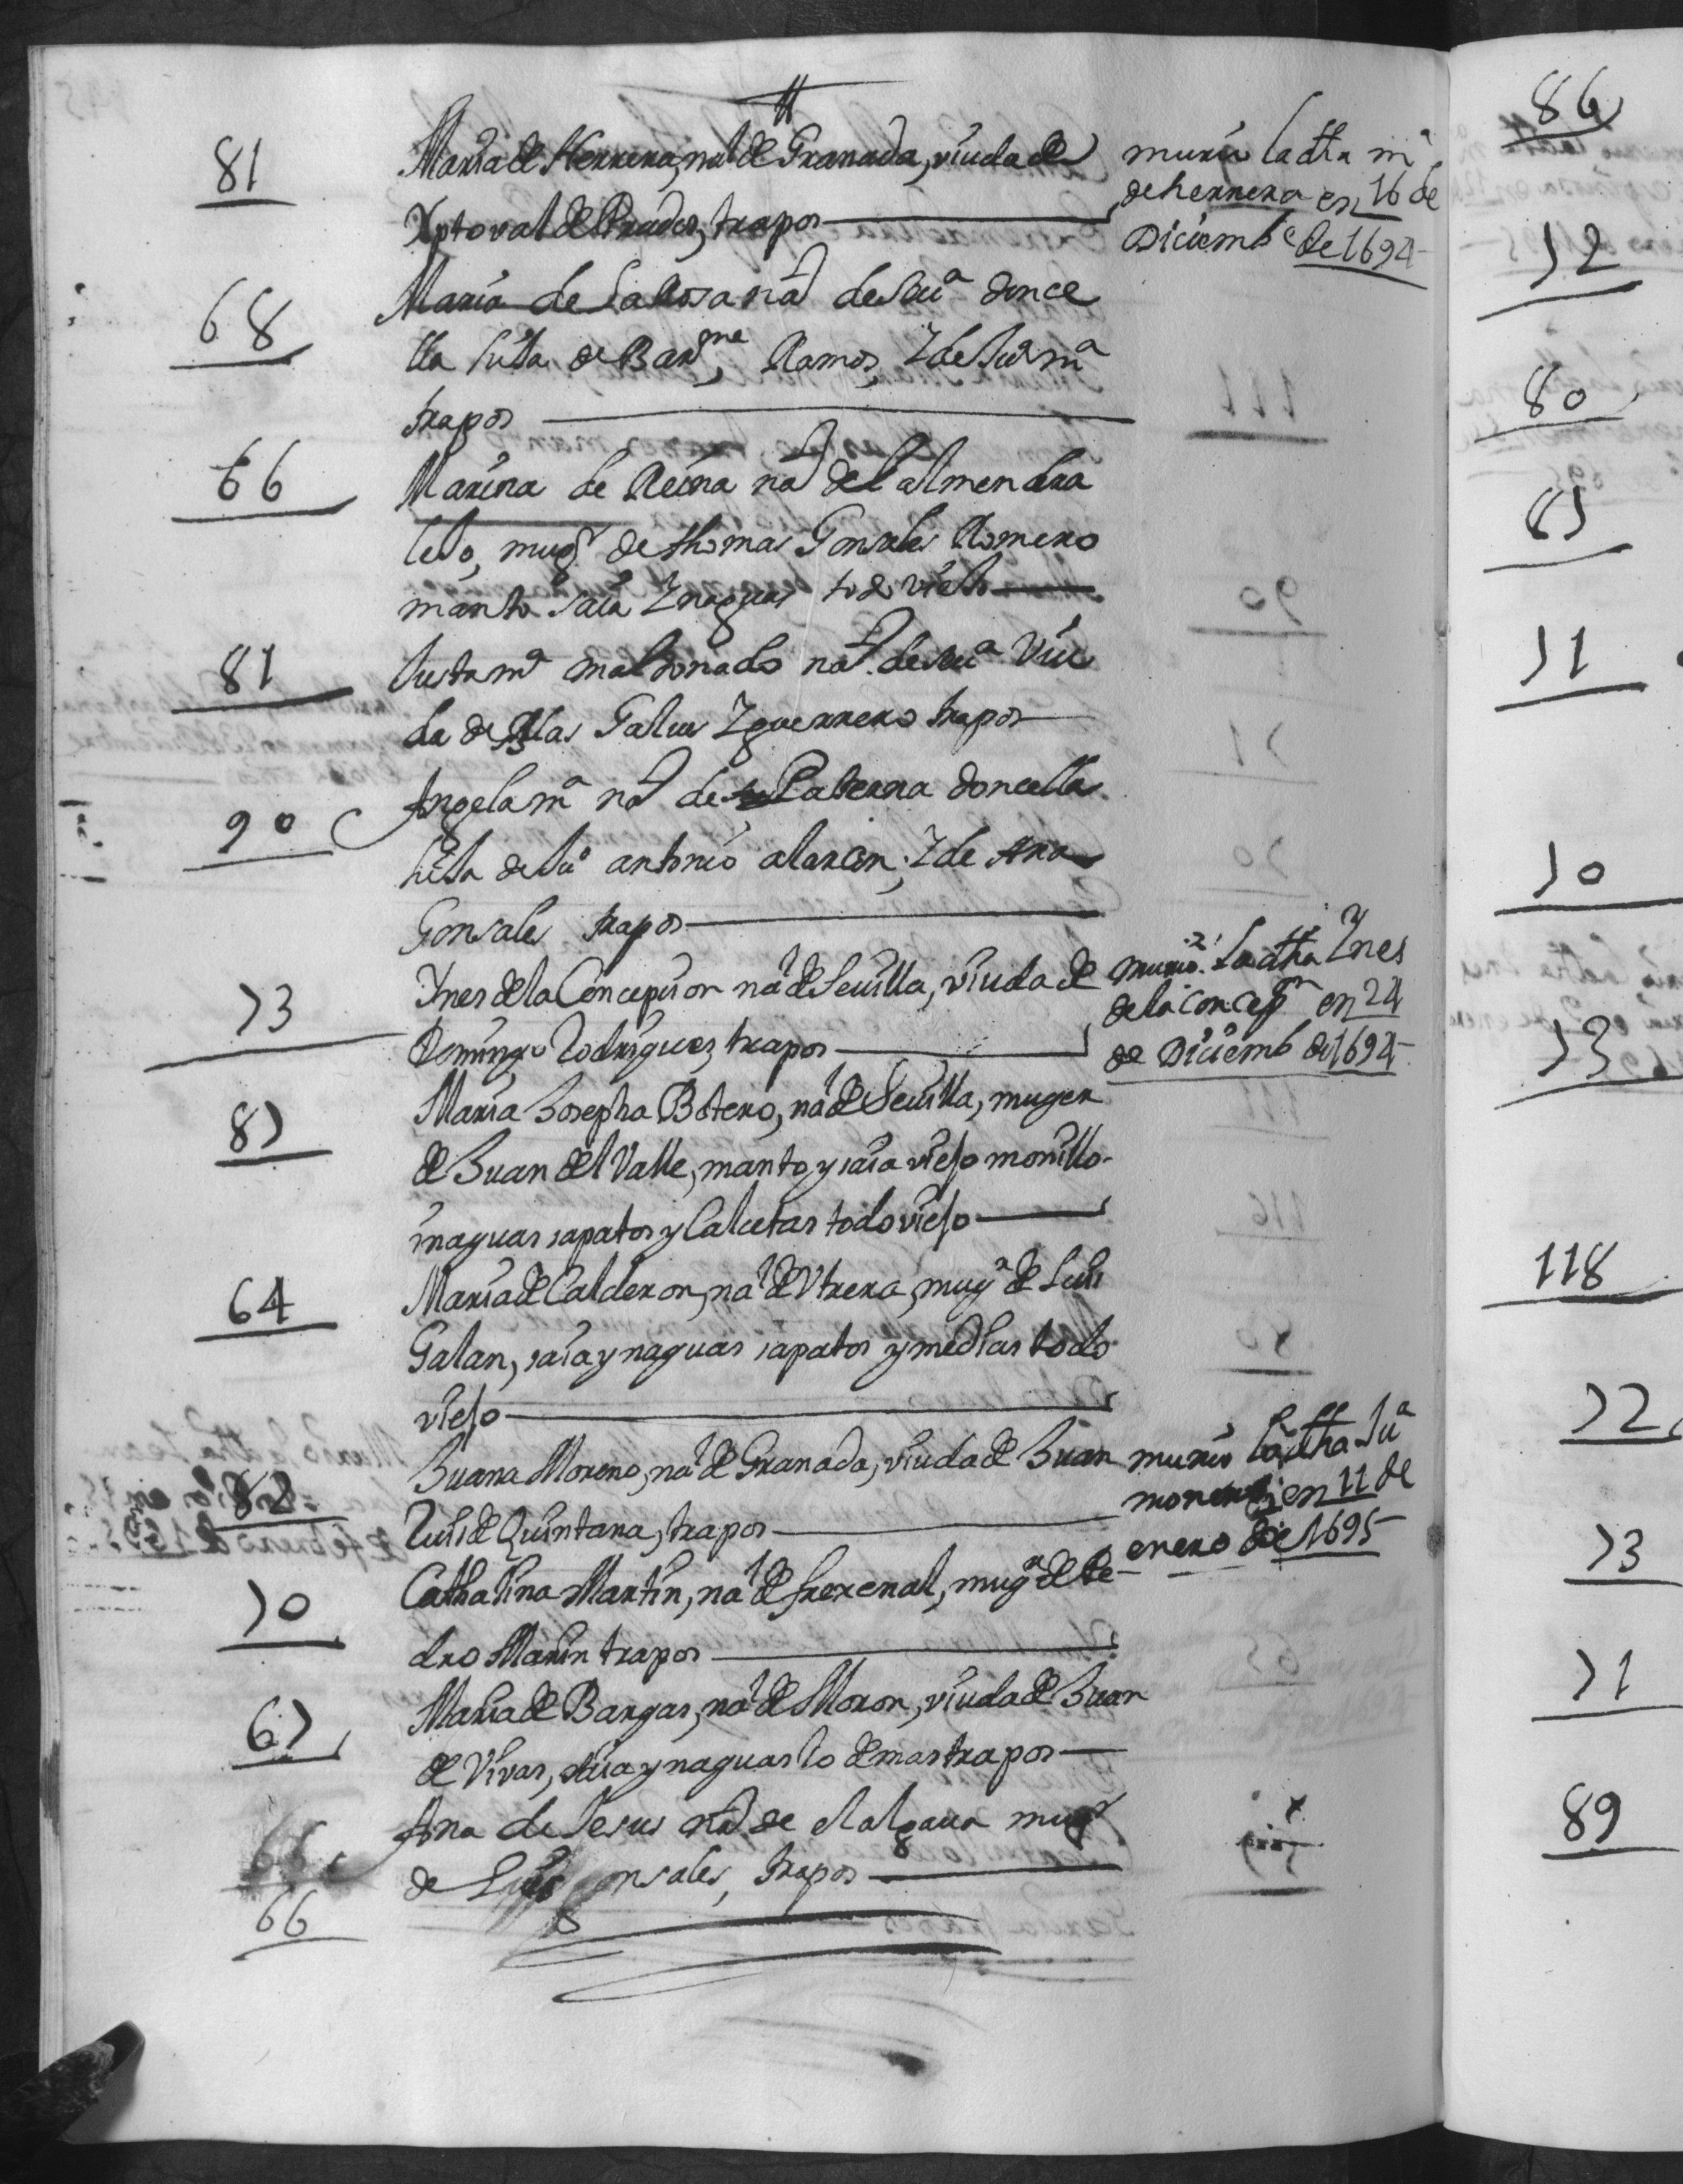 81
Maria de Herrera, nal de Granada, viuda de
Xptoval de Prados, trapos
murio la dha mª
de herrera en 16 de
Diciembe de 1694
68
Maria de la Rosa nal de Seuª donce
lla hija de Barme Ramos, Y de Juª mª
trapos
66
Marina de Reina nal del almendra
lejo, mugr de thomas Gonsales Romero
manto saia Y naguas todo viejo
81
Justa mª maldonado nal de seuª Viu
da de Blas Galus Y guerrero trapos
90
Angela mª nal de Paterna doncella
hija de Juº antonio alarcon, Y de Ana
Gonsales trapos
73
Ynes de la Concepcion nal de Seuilla, viuda de
Domingo Rodriguez, trapos
murio la dha Ynes
de la concepn en 24
de Diciemb de 1694
87
Maria Josepha Botero, nal de Seuilla, muger
de Juan del Valle, manto y saia viejo monillo
inaguas sapatos y Calcetas todo viejo
64
Maria de Calderon, nal de Vtrera, mugr de Luis
Galan, saia y naguas sapatos y medias todo
viejo
82
Juana Moreno, nal de Granada, viuda de Juan
Ruis de Quintana, trapos
murio la dha Juª
moreno en 11 de
enero de 1695
70
Cathalina Martin, nal de frexenal, mugr de Pe
dro Marin trapos
67
Maria de Bargas, nal de Moron, viuda de Juan
de Vivas, saia y naguas lo demas trapos
66
66
Ana de Jesus nal de el algaua mugr
de Luis Gonsales, trapos
86
72
80
87
71
70
73
118
72
73
71
89